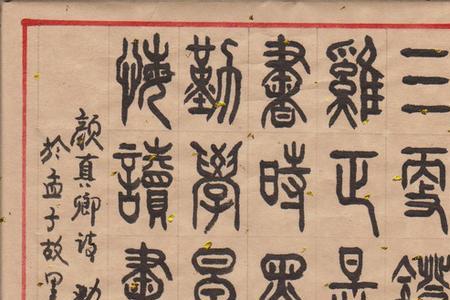 三更鐙
雞正是
書時黑
勤學早
悔讀書
顏真卿詩
於孟子故里